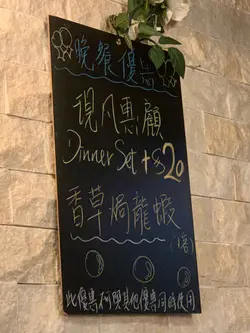 晚餐優惠
現凡惠顧
Dinner Set +$20
香草焗龍蝦
(1客)
此優惠不可與其他優惠同時使用